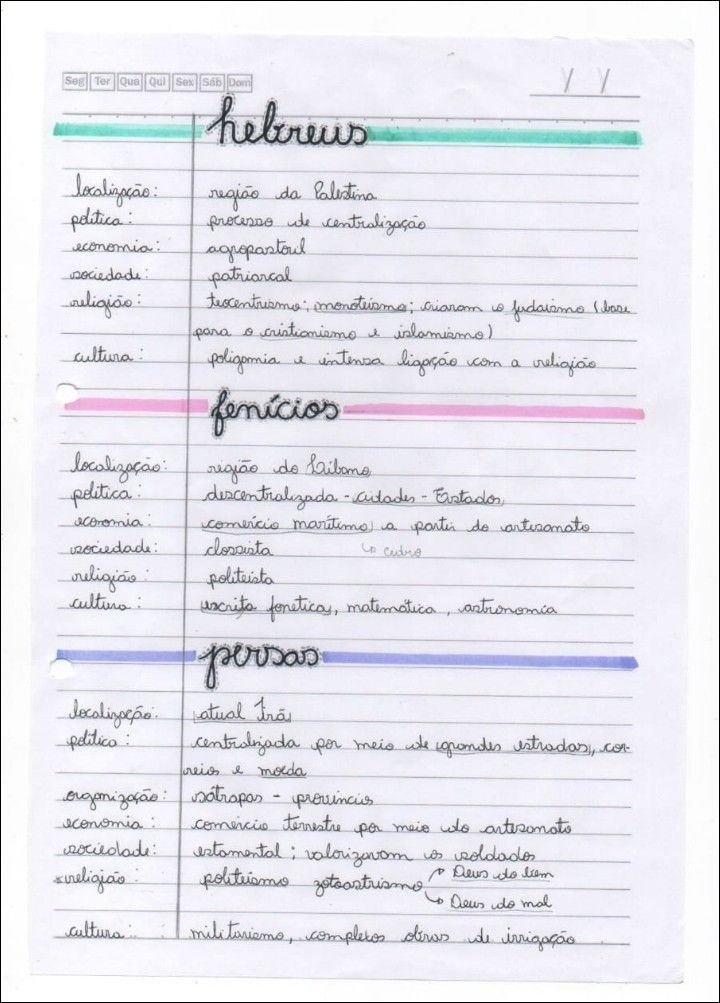 Seg Ter Qua Qui Sex Sáb Dom
hebreus
localização: região da Palestina
política: processo de centralização
economia: agropastoril
sociedade: patriarcal
religião: teocentrismo; monoteísmo; criaram o judaísmo (base
para o cristianismo e islamismo)
cultura: poligamia e intensa ligação com a religião
fenícios
localização: região do Líbano
política: descentralizada - cidades - Estados
economia: comércio marítimo a partir do artesanato
sociedade: classista ↳ cedro
religião: politeísta
cultura: escrita fonética, matemática, astronomia
persas
localização: atual Irã
política: centralizada por meio de grandes estradas, cor-
reios e moeda
organização: sátrapas - províncias
economia: comércio terrestre por meio do artesanato
sociedade: estamental; valorizavam os soldados
*religião: politeísmo zotoastrismo ↗ Deus do bem
↳ Deus do mal
cultura: militarismo, complexos obras de irrigação